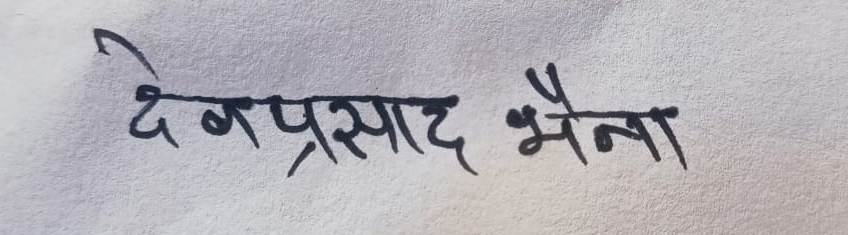 देवप्रसाद भैना